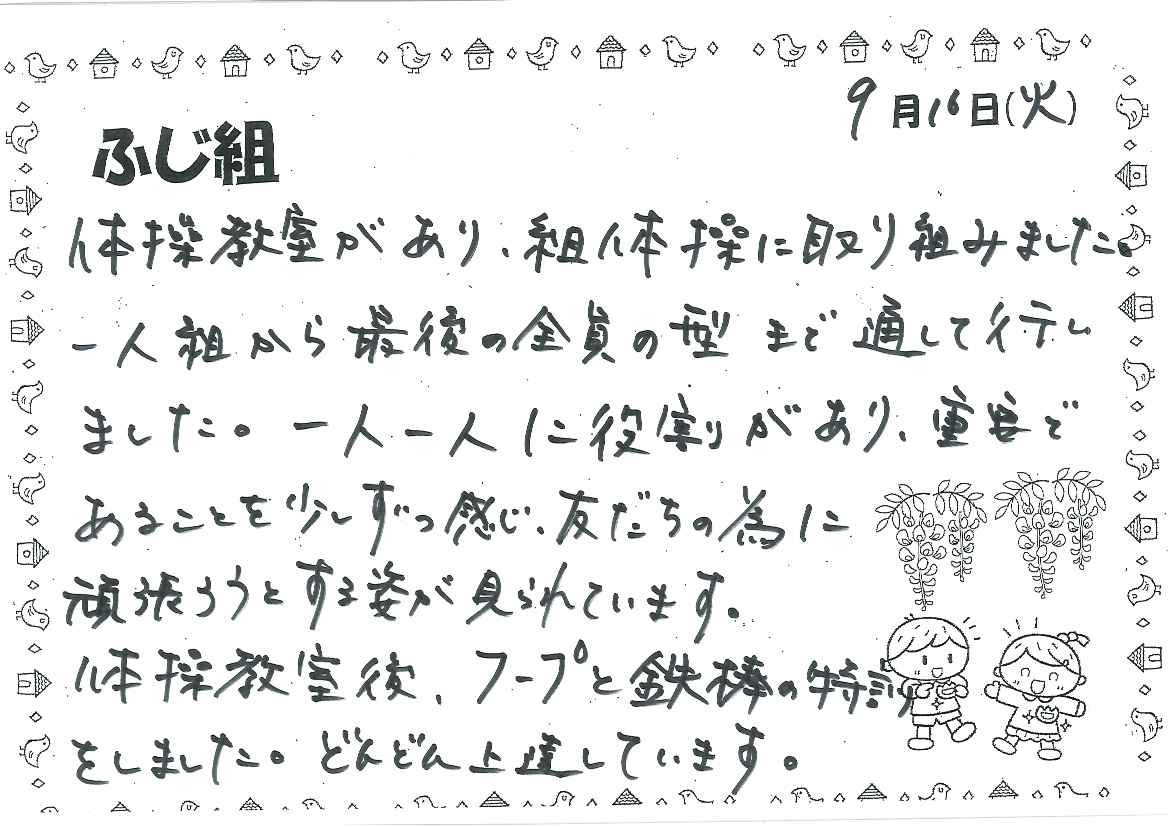 9月16日(火)
ふじ組
体操教室があり、組体操に取り組みました。
一人組から最後の全員の型まで通して行い
ました。一人一人に役割があり、重要で
あることを少しずつ感じ、友だちの為に
頑張ろうとする姿が見られています。
体操教室後、フープと鉄棒の特訓
をしました。どんどん上達しています。